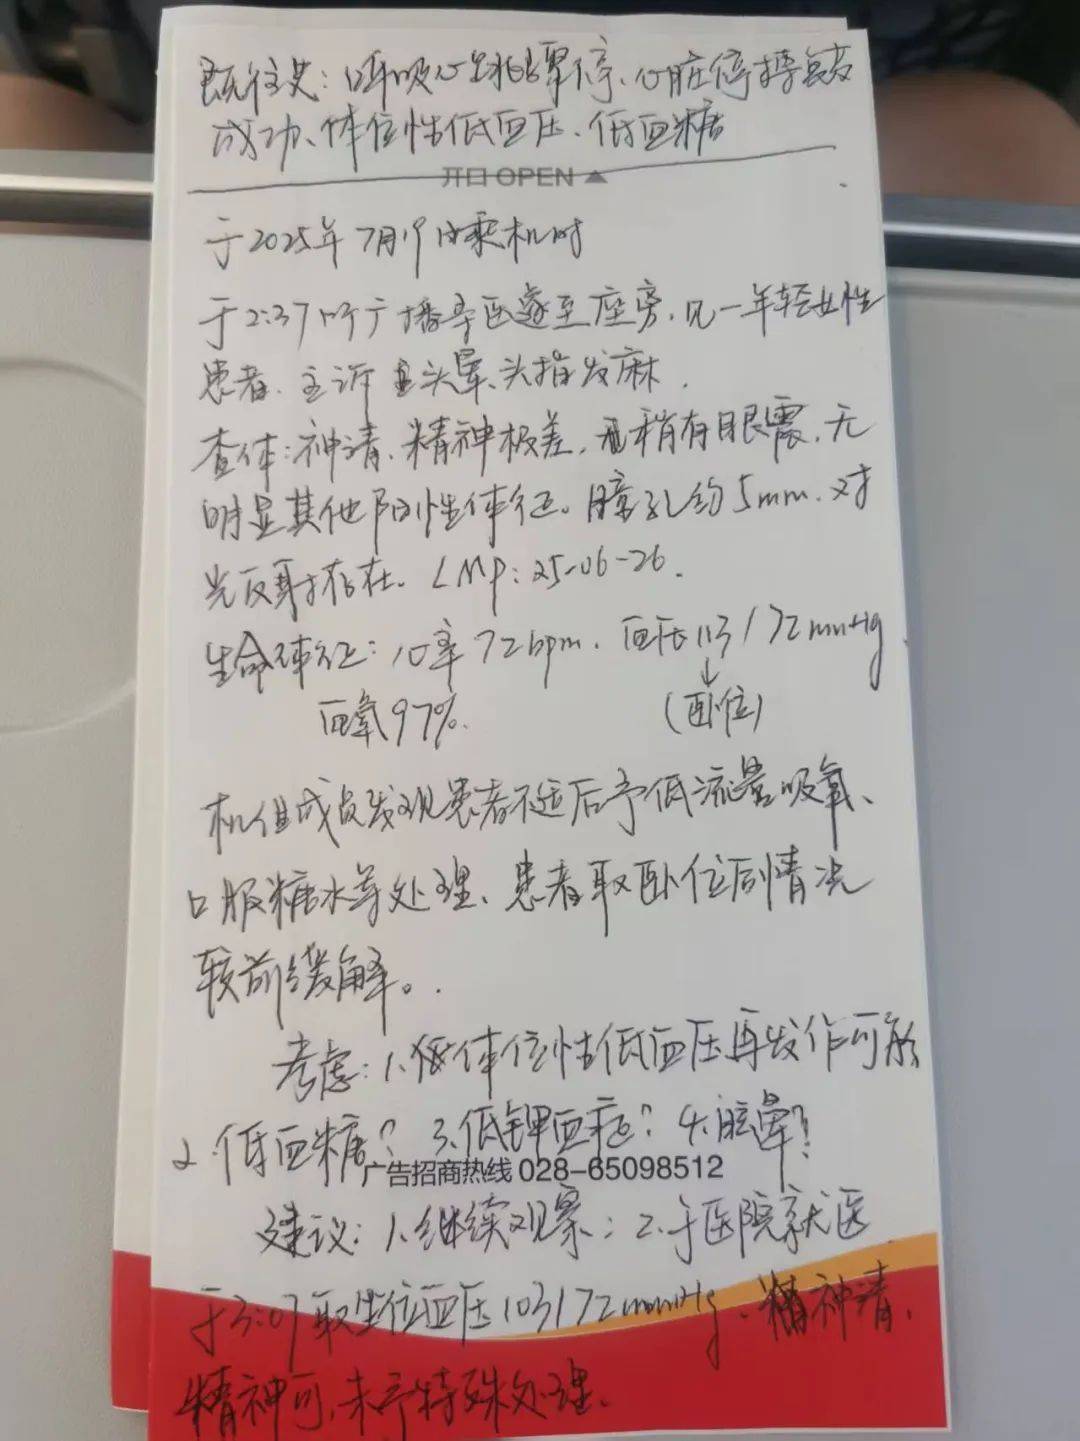 既往史：呼吸心跳骤停、心脏停搏复苏
成功、体位性低血压、低血糖
开口 OPEN
于2025年7月19日乘机时
于2:37听广播寻医遂至座旁，见一年轻女性
患者，主诉头晕、头指发麻．
查体：神清，精神极差，稍有眼震，无
明显其他阳性体征。瞳孔约5mm．对
光反射存在。LMP：25-06-26．
生命体征：心率72bpm．血压113/72mmHg．
血氧97%．（卧位）
机组成员发现患者不适后予低流量吸氧、
口服糖水等处理，患者取卧位后情况
较前缓解。．
考虑：1.体位性低血压再发作可能
2.低血糖？ 3.低钾血症？ 4.眩晕？
广告招商热线 028-65098512
建议：1.继续观察；2.于医院就医．
于3:07取坐位血压103/72mmHg、神清，
精神可，未予特殊处理．